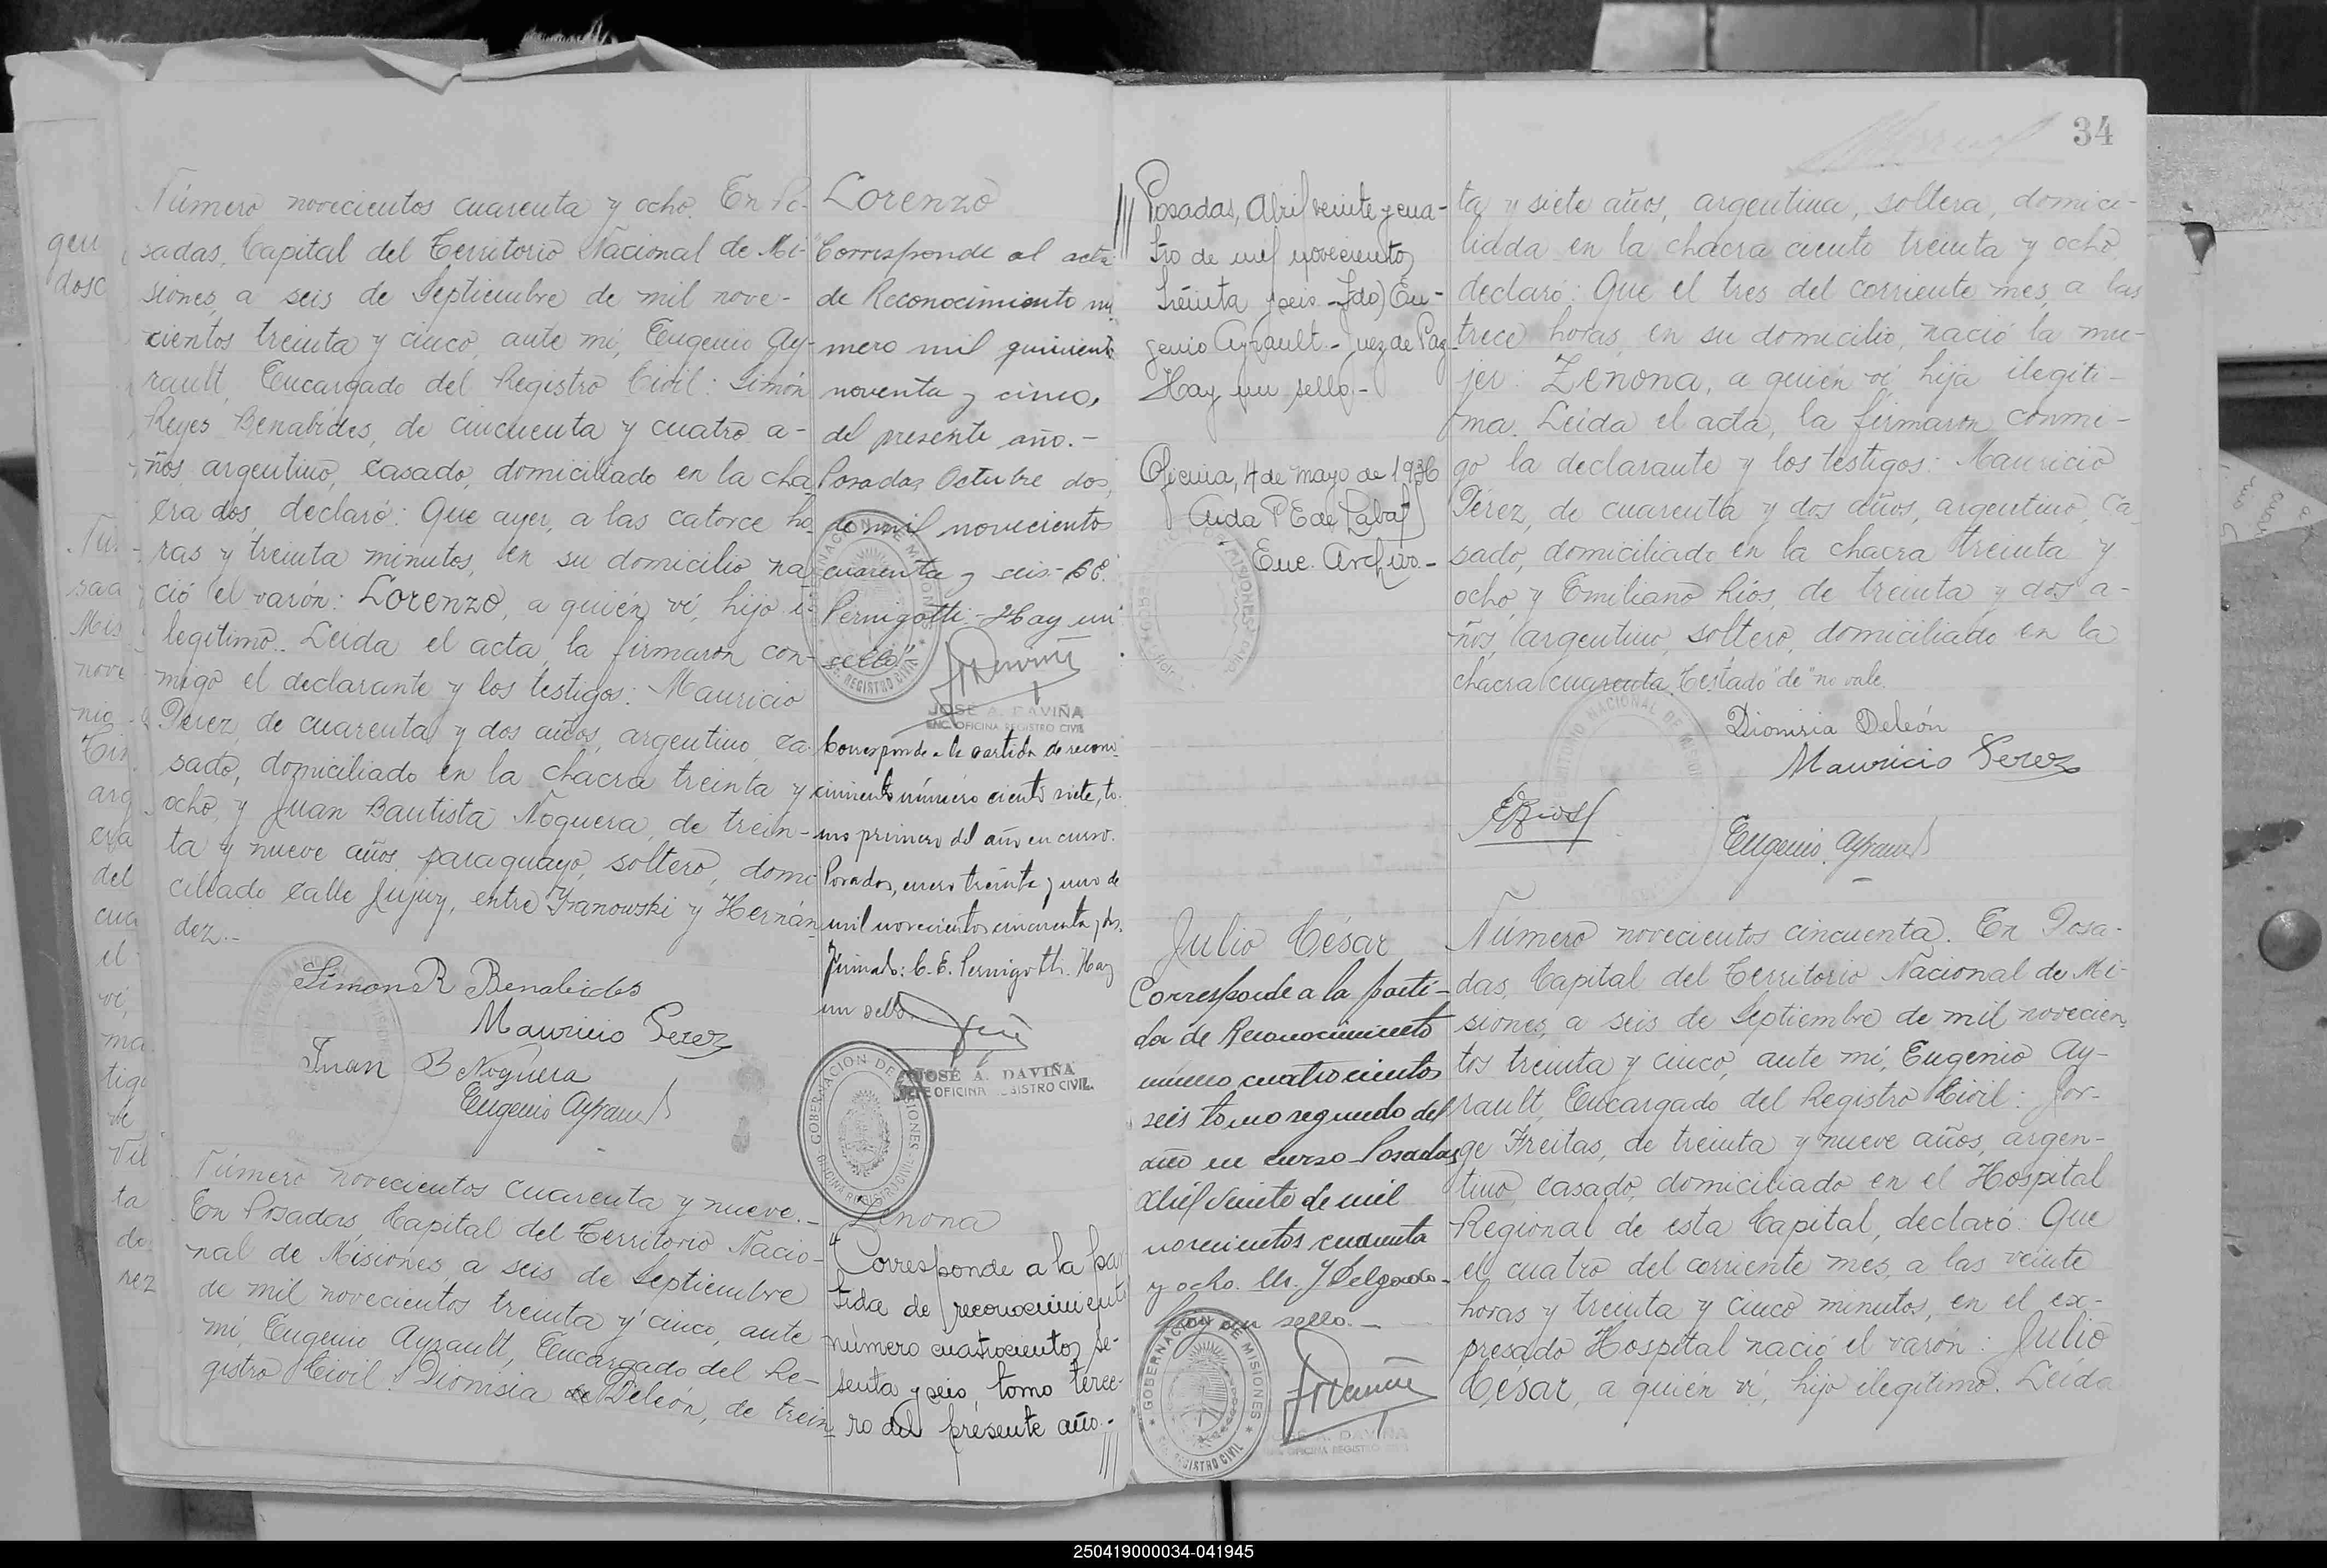 Número novecientos cuarenta y ocho. En Po-
sadas, Capital del Territorio Nacional de Mi-
siones, a seis de Septiembre de mil nove-
cientos treinta y cinco, ante mi, Eugenio Ay-
rault, Encargado del Registro Civil: Simón
Reyes Benabides, de cincuenta y cuatro a-
ños, argentino, casado, domiciliado en la cha
cra dos, declaró: Que ayer, a las catorce ho
ras y treinta minutos, en su domicilio na
ció el varón: Lorenzo, a quién ví, hijo i-
legítimo. Leida el acta, la firmaron con-
migo el declarante y los testigos: Mauricio
Perez, de cuarenta y dos años, argentino, ca-
sado, domiciliado en la chacra treinta y
ocho, y Juan Bautista Noguera, de trein-
ta y nueve años, paraguayo, soltero, domi-
ciliado calle Jujuy, entre Yranowski y Hernán
dez.-
Simon R Benabides
Mauricio Perez
Juan B Noguera
Eugenio Ayrault
Número novecientos cuarenta y nueve.-
En Posadas, Capital del Territorio Nacio-
nal de Misiones, a seis de Septiembre
de mil novecientos treinta y cinco, ante
mi, Eugenio Ayrault, Encargado del Re-
gistro Civil: Dionisia de Deleón, de trein
Lorenzo
"Corresponde al acta
de Reconocimiento nu
mero mil quinient
noventa y cinco,
del presente año.-
Posadas, Octubre dos,
de mil novecientos
cuarenta y seis.- C E.
Pernigotti.- Hay un
sello"
JOSÉ A. DAVIÑA
ENC. OFICINA REGISTRO CIVIL
Corresponde a la partida de recono-
cimiento número ciento siete, to-
mo primero del año en curso.
Posadas, enero treinta y uno de
mil novecientos cincuenta y dos.
Firmado: C. E. Pernigotti. Hay
un sello.
JOSÉ A. DAVIÑA
JEFE OFICINA REGISTRO CIVIL.
GOBERNACION DE MISIONES
Zenona
"Corresponde a la par
tida de reconocimient
número cuatrocientos se-
senta y seis, tomo terce-
ro del presente año.-
34
Posadas, Abril veinte y cua-
tro de mil novecientos
treinta y seis.- fdo) Eu-
genio Ayrault.- Juez de Paz-
Hay un sello.-
Oficina, 4 de mayo de 1936
Aida P E de Labat
Enc. Archivo.-
ta y siete años, argentina, soltera, domici-
liada en la chacra ciento treinta y ocho
declaró: Que el tres del corriente mes, a las
trece horas, en su domicilio, nació la mu-
jer: Zenona, a quién ví, hija ilegiti-
ma. Leída el acta, la firmaron conmi-
go la declarante y los testigos: Mauricio
Pérez, de cuarenta y dos años, argentino, ca
sado, domiciliado en la chacra treinta y
ocho, y Emiliano Ríos, de treinta y dos a-
ños, argentino, soltero, domiciliado en la
chacra cuarenta. Testado "de" no vale.
Dionisia Deleón
Mauricio Perez
E Rios
Eugenio Ayrault
Julio César
Corresponde a la parti-
da de Reconocimiento
número cuatrocientos
seis tomo segundo del
año en curso- Posadas
Abril veinte de mil
novecientos cuarenta
y ocho. M. J Delgado-
hay un sello.-
GOBERNACION DE MISIONES
REGISTRO CIVIL
JOSÉ A. DAVIÑA
ENC. OFICINA REGISTRO CIVIL
Número novecientos cincuenta. En Posa-
das, Capital del Territorio Nacional de Mi-
siones, a seis de Septiembre de mil novecien
tos treinta y cinco, ante mí, Eugenio Ay-
rault, Encargado del Registro Civil: Jor-
ge Freitas, de treinta y nueve años, argen-
tino, casado, domiciliado en el Hospital
Regional de esta Capital, declaró: Que
el cuatro del corriente mes, a las veinte
horas y treinta y cinco minutos, en el ex-
presado Hospital nació el varón: Julio
César, a quién ví, hijo ilegítimo. Leída
250419000034-041945